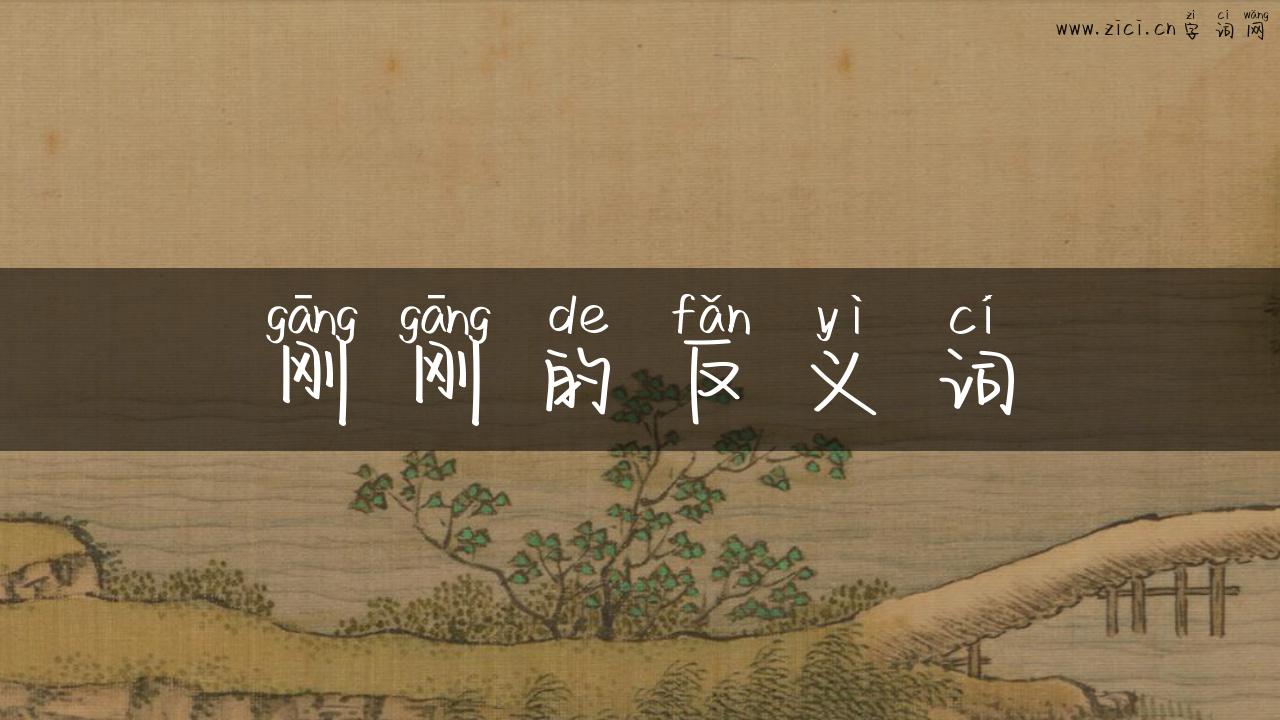 zì cí wǎng
www.zici.cn 字 词 网
gāng gāng de fǎn yì cí
刚 刚 的 反 义 词